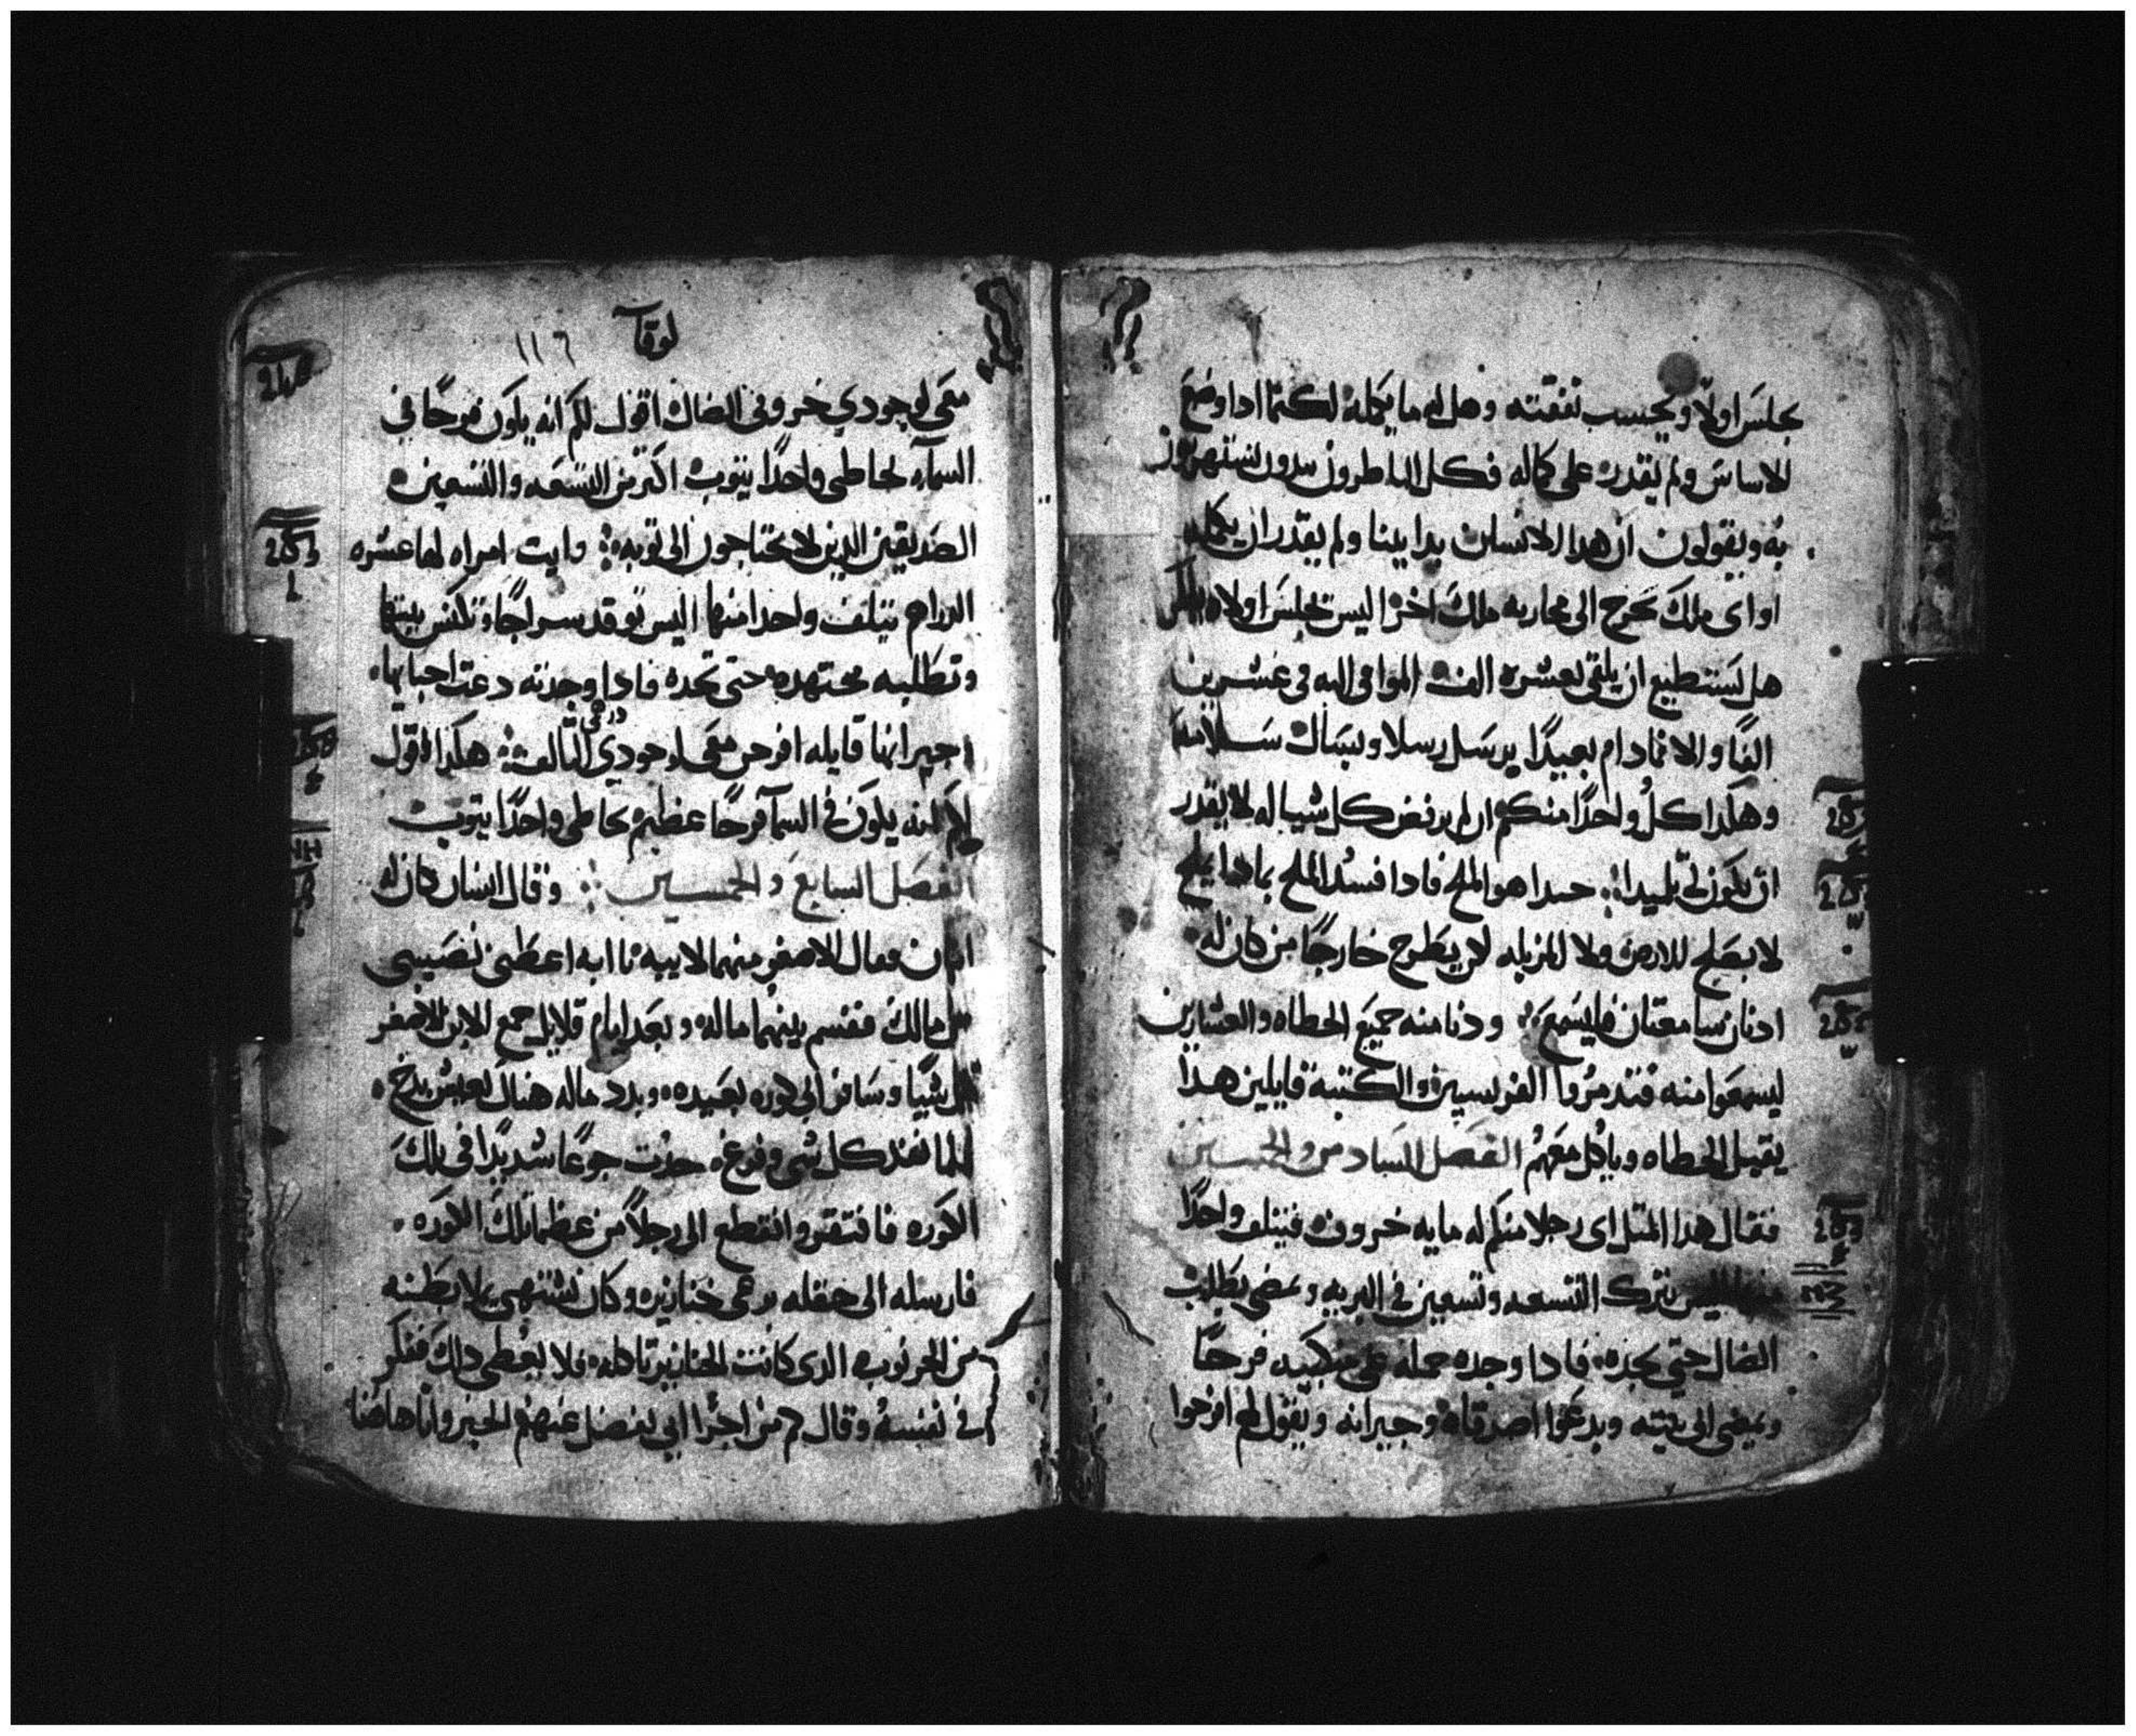 يجلس اولا ويحسب نفقته وهل له ما يكمله لكيما ادا وضع
الاساس ولم يقدر على كماله فكل الناطرون يبدون يستهزون
به ويقولون ان هدا الانسان بدا يبنا ولم يقدر ان يكمله
او اى ملك يخرج الى محاربه ملك اخر اليس يجلس اولا
هل يستطيع ان يلقى بعشره الف الموافى اليه فى عشرين
الفا والا فمادام بعيدا يرسل رسلا ويسال سلامه
وهكدا كل واحدا منكم ان لم يرفض كل شيا له لا يقدر
ان يكون لى تلميدا جيدا هو الملح فادا فسد الملح بمادا يملح
لا يصلح للارض ولا المزبله لكن يطرح خارجا من كان له
ادنان سامعتان فليسمع ودنا منه جميع الخطاه والعشارين
ليسمعوا منه فتدمروا الفريسيين والكتبة قايلين هدا
يقبل الخطاه وياكل معهم الفصل السادس والخمسين
فقال هدا المتل اى رجلا منكم له مايه خروف فيتلف واحدا
اليس يترك التسعه وتسعين فى البريه ويمضى يطلب
الضال حتى يجده فادا وجده حمله على منكبيه فرحا
ويمضى الى بيته ويدعوا اصدقاه وجيرانه ويقول لهم افرحوا
لوقا
١١٦
معى لوجودي خروفى الضال اقول لكم انه يكون فرحا في
السماء بخاطى واحدا يتوب اكتر من التسعه والتسعين
الصديقين الدين لا يحتاجون الى توبه وايت امراه لها عشره
الدراهم يتلف واحدا منها اليس توقد سراجا وتكنس بيتها
وتطلبه مجتهده حتى تجده فادا وجدته دعت احبايها
وجيرانها قايله افرحن معى لوجودي التالف هكدا اقول
درهمى
لكم انه يكون فى السما فرحا عظيم بخاطى واحدا يتوب
الفصل السابع والخمسين وقال انسان كان له
ابنان فقال الاصغر منهما لابيه يا ابه اعطنى نصيبى
من مالك فقسم بينهما ماله وبعد ايام قلايل جمع الابن الاصغر
كل شيا وسافر الى كوره بعيده وبدد ماله هناك بعيش بدخ
فلما نفد كل شى وفرغ حدت جوعا شديدا فى تلك
الكوره فافتقر وانقطع الى رجلا من عظما تلك الكوره
فارسله الى حقله يرعى خنازيره وكان يشتهى يملا بطنه
من الخرنوب الدى كانت الخنازير تاكله فلا يعطى دلك ففكر
فى نفسه وقال كم من اجرا ابى يفضل عنهم الخبز وانا هاهنا